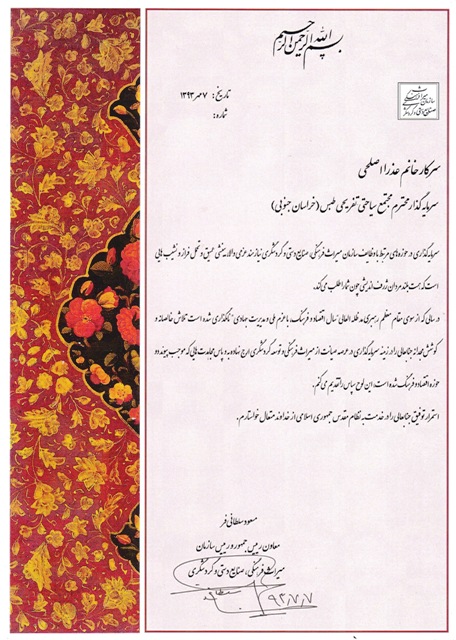 بسم الله الرحمن الرحیم
تاریخ: ۷ مهر ۱۳۹۳
شماره:
سازمان میراث فرهنگی
صنایع دستی و گردشگری
سرکار خانم عذرا اصلحی
سرمایه گذار محترم مجتمع سیاحتی تفریحی طبس (خراسان جنوبی)
سرمایه گذاری در حوزه های مرتبط با وظایف سازمان میراث فرهنگی، صنایع دستی و گردشگری نیازمند عزمی والا، بینشی عمیق و تحمل فراز و نشیب هایی
است که همت بلند مردان ژرف اندیشی چون شما را طلب می کند.
در سالی که از سوی مقام معظم رهبری مدظله العالی "سال اقتصاد و فرهنگ، با عزم ملی و مدیریت جهادی" نامگذاری شده است تلاش خالصانه و
کوشش مجدانه جنابعالی را در زمینه سرمایه گذاری در عرصه صیانت از میراث فرهنگی و توسعه گردشگری ارج نهاده و به پاس مجاهدت هایی که موجب پیوند دو
حوزه اقتصاد و فرهنگ شده است، این لوح سپاس را تقدیم می کنم.
استمرار توفیق جنابعالی را در خدمت به نظام مقدس جمهوری اسلامی از خداوند متعال خواستارم.
مسعود سلطانی فر
معاون رییس جمهور و رییس سازمان
میراث فرهنگی، صنایع دستی و گردشگری
۹۳,۷,۷